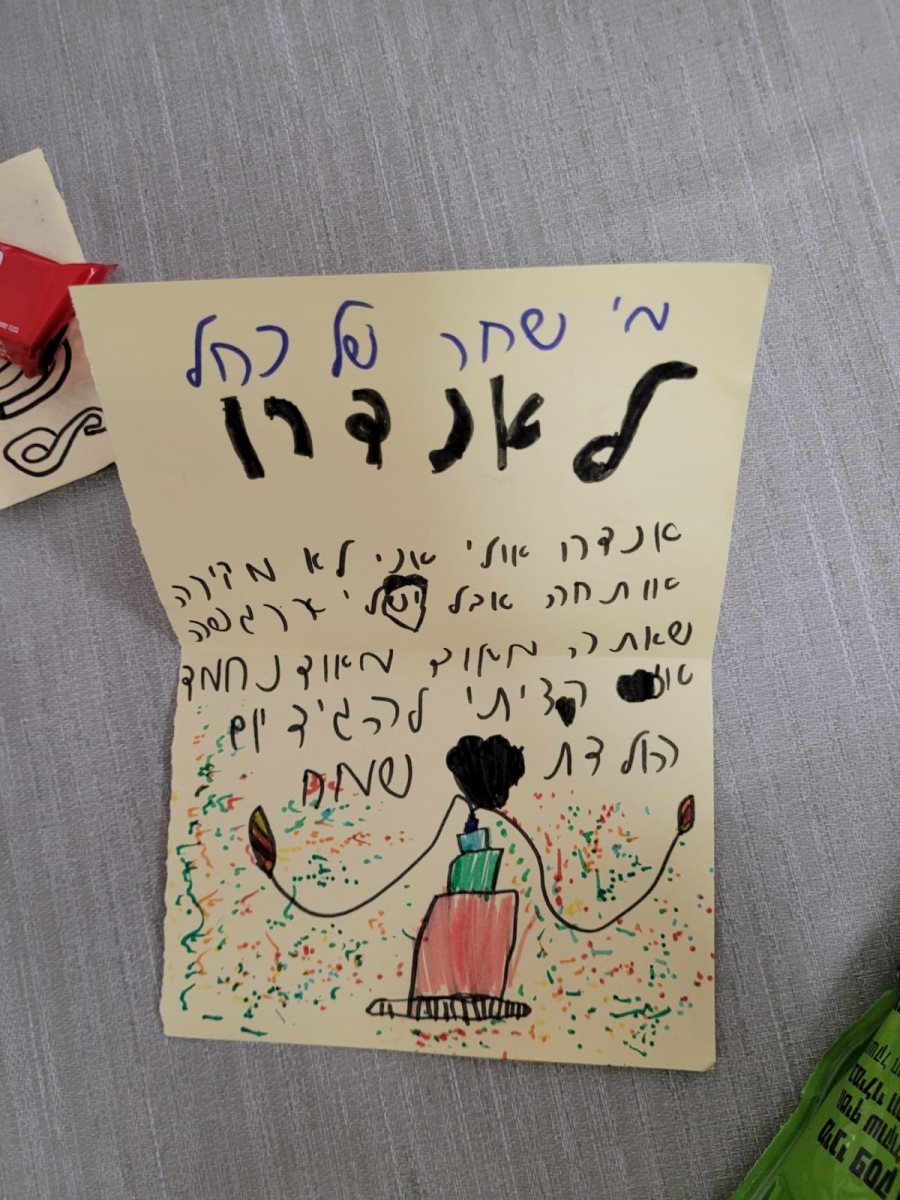 מ' שחר של רחל
לאנדרו
אנדרו אולי אני לא מכירה
אותחה אבל יש לי הרגשה
שאתה מאוד מאוד נחמד
רציתי להגיד יום
הולדת שמח